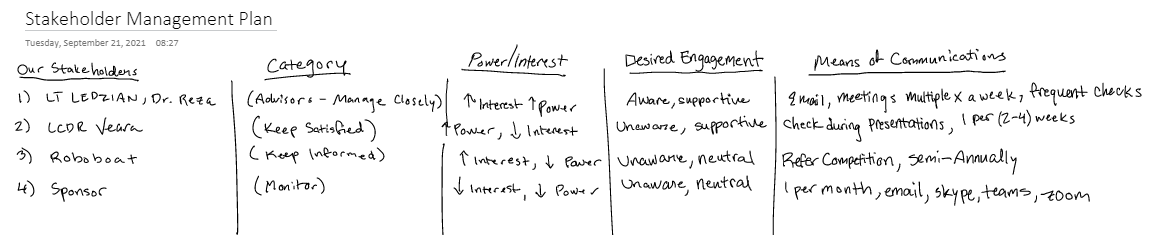 Stakeholder Management Plan
Tuesday, September 21, 2021 08:27
Our Stakeholders Category Power/Interest Desired Engagement Means of Communications
1) LT LEDZIAN, Dr. Reza (Advisors - Manage Closely) ↑ Interest ↑ Power Aware, supportive Email, meetings multiple x a week, frequent checks
2) LCDR (Keep Satisfied) ↑ Power, ↓ Interest Unaware, supportive Check during Presentations, 1 per (2-4) weeks
3) Roboboat (Keep Informed) ↑ Interest, ↓ Power Unaware, neutral Refer Competition, semi-Annually
4) Sponsor (Monitor) ↓ Interest, ↓ Power Unaware, neutral 1 per month, email, skype, teams, zoom